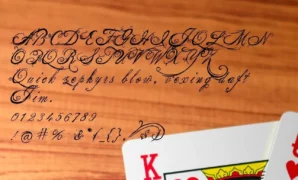 ABCDEFGHIJKLMN
OPQRSTUVWXYZ
Quick zephyrs blow, vexing daft
Jim.
0123456789
!@#% &*(_{}.
K